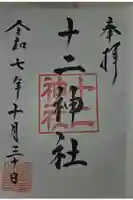 奉拝
十二神社
令和七年十月三十日